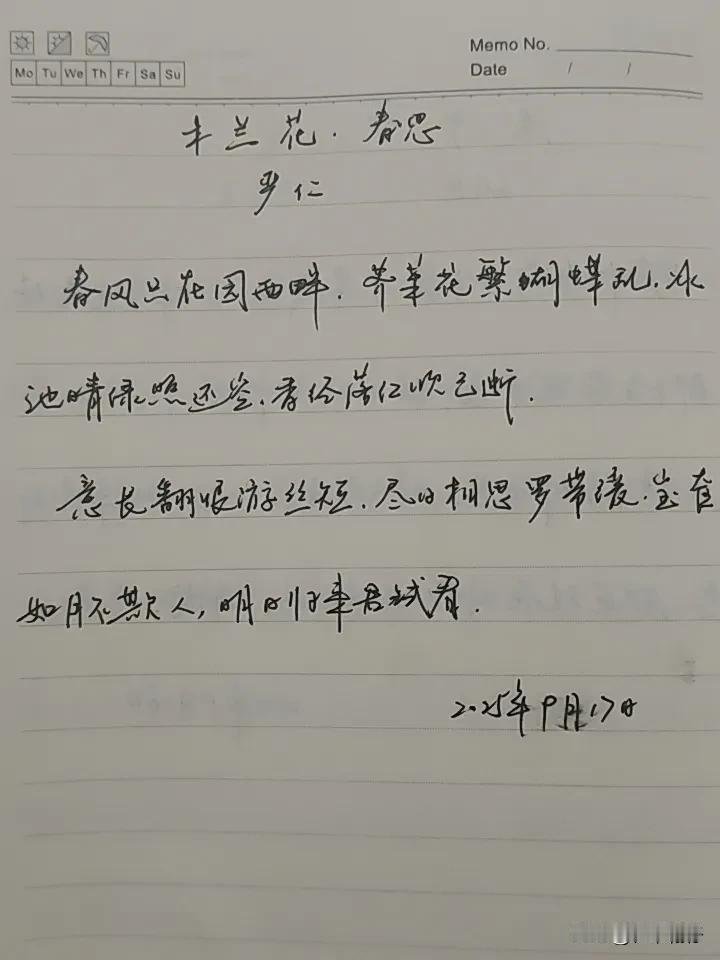 Memo No.
Mo Tu We Th Fr Sa Su
Date / /
木兰花·春思
严仁
春风只在园西畔.荠菜花繁蝴蝶乱.冰
池晴绿照还空.香径落红吹已断.
意长翻恨游丝短.尽日相思罗带缓.宝奁
如月不欺人,明日归来君试看.
2025年9月17日